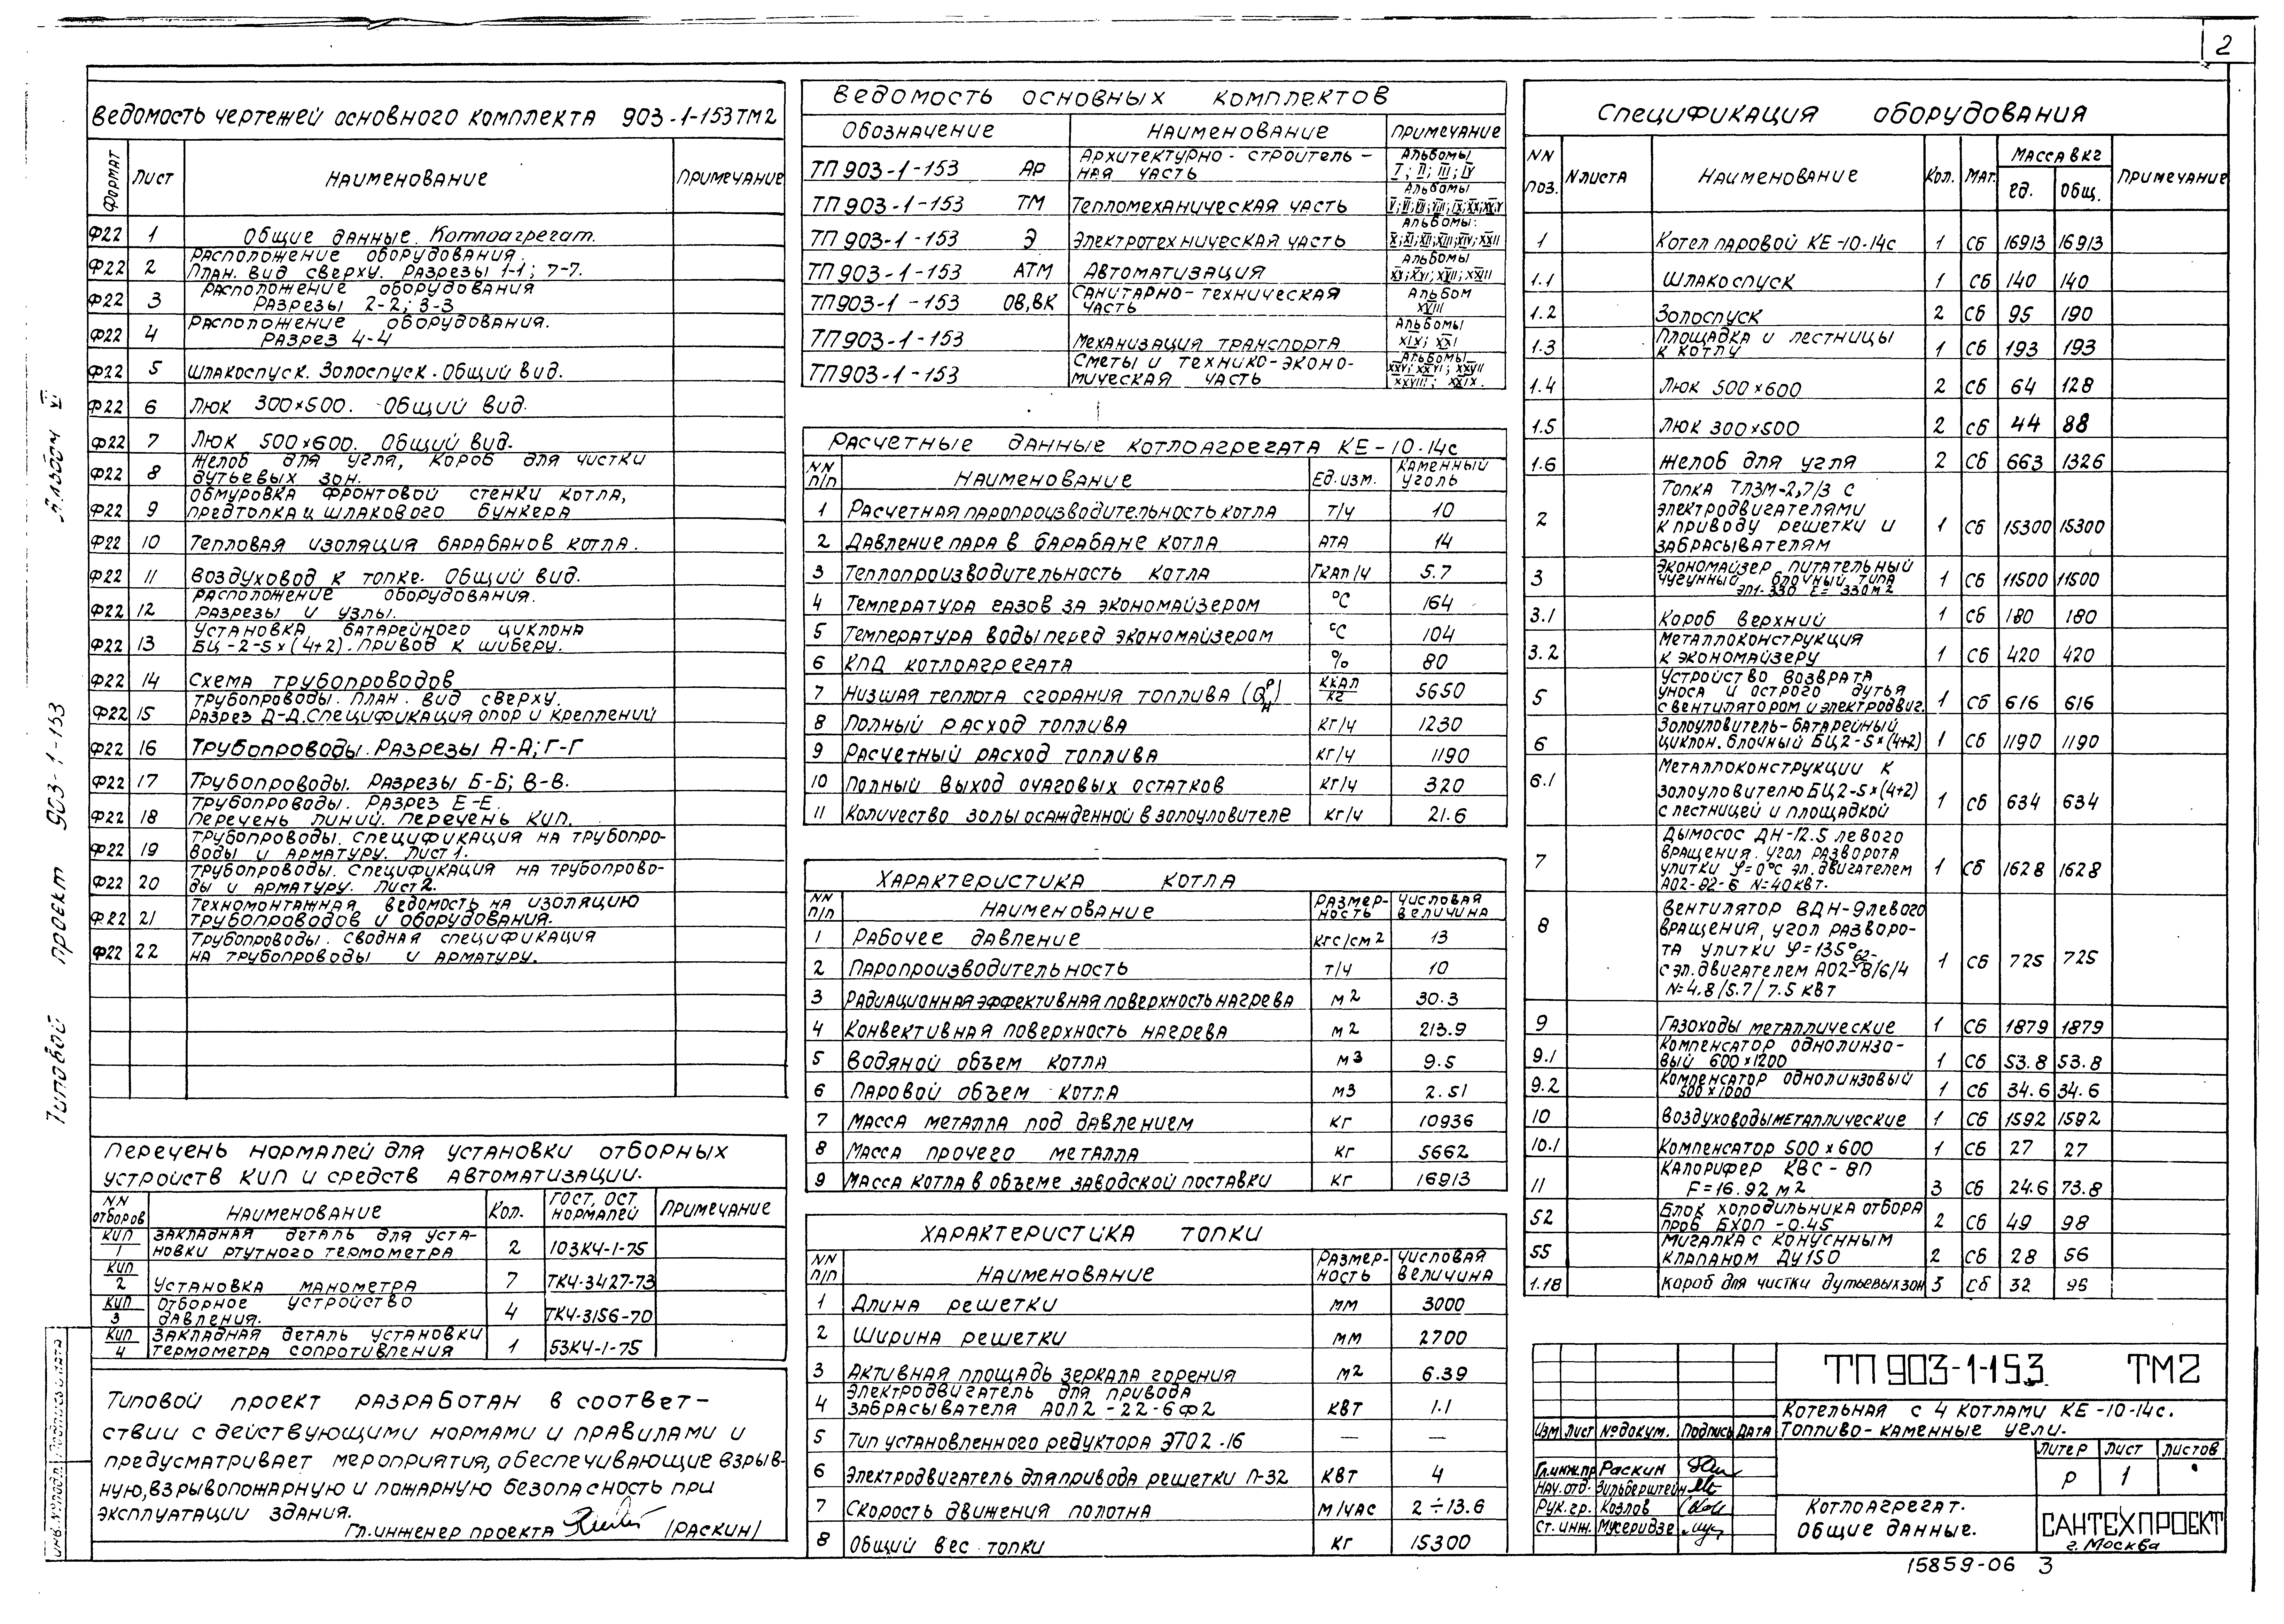 2
Ведомость чертежей основного комплекта 903-1-153 ТМ2
Формат
Лист
Наименование
Примечание
Ф22 1 Общие данные. Котлоагрегат.
Ф22 2 Расположение оборудования.
План. Вид сверху. Разрезы 1-1; 7-7.
Ф22 3 Расположение оборудования
Разрезы 2-2; 3-3
Ф22 4 Расположение оборудования.
Разрез 4-4
Ф22 5 Шлакоспуск. Золоспуск. Общий вид.
Ф22 6 Люк 300×500. Общий вид.
Ф22 7 Люк 500×600. Общий вид.
Ф22 8 Желоб для угля, короб для чистки
дутьевых зон.
Ф22 9 Обмуровка фронтовой стенки котла,
предтопка и шлакового бункера
Ф22 10 Тепловая изоляция барабанов котла.
Ф22 11 Воздуховод к топке. Общий вид.
Ф22 12 Расположение оборудования.
Разрезы и узлы.
Ф22 13 Установка батарейного циклона
БЦ-2-5×(4+2). Привод к шиберу.
Ф22 14 Схема трубопроводов
Ф22 15 Трубопроводы. План. Вид сверху.
Разрез Д-Д. Спецификация опор и креплений
Ф22 16 Трубопроводы. Разрезы А-А; Г-Г
Ф22 17 Трубопроводы. Разрезы Б-Б; В-В.
Ф22 18 Трубопроводы. Разрез Е-Е.
Перечень линий. Перечень КИП.
Ф22 19 Трубопроводы. Спецификация на трубопро-
воды и арматуру. Лист 1.
Ф22 20 Трубопроводы. Спецификация на трубопрово-
ды и арматуру. Лист 2.
Ф22 21 Техномонтажная ведомость на изоляцию
трубопроводов и оборудования.
Ф22 22 Трубопроводы. Сводная спецификация
на трубопроводы и арматуру.
Перечень нормалей для установки отборных
устройств КИП и средств автоматизации.
NN отборов
Наименование
Кол.
ГОСТ, ОСТ нормалей
Примечание
КИП 1 Закладная деталь для уста-
новки ртутного термометра 2 103КЧ-1-75
КИП 2 Установка манометра 7 ТКЧ-3427-73
КИП 3 Отборное устройство
давления. 4 ТКЧ-3156-70
КИП 4 Закладная деталь установки
термометра сопротивления 1 53КЧ-1-75
Типовой проект разработан в соответ-
ствии с действующими нормами и правилами и
предусматривает мероприятия, обеспечивающие взрыв-
ную, взрывопожарную и пожарную безопасность при
эксплуатации здания.
Гл. инженер проекта /Раскин/
Ведомость основных комплектов
Обозначение
Наименование
Примечание
ТП 903-1-153 АР Архитектурно-строитель-
ная часть Альбомы
I; II; III; IV
ТП 903-1-153 ТМ Тепломеханическая часть Альбомы
ТП 903-1-153 Э Электротехническая часть Альбомы:
ТП 903-1-153 АТМ Автоматизация Альбомы
ТП 903-1-153 ОВ,ВК Санитарно-техническая
часть Альбом
XVIII
ТП 903-1-153 Механизация транспорта Альбомы
XIX; XXI
ТП 903-1-153 Сметы и технико-эконо-
мическая часть Альбомы
XXV; XXVI; XXVII
XXVIII; XXIX.
Расчетные данные котлоагрегата КЕ-10-14с
NN п/п
Наименование
Ед. изм.
Каменный уголь
1 Расчетная паропроизводительность котла т/ч 10
2 Давление пара в барабане котла ата 14
3 Теплопроизводительность котла Гкал/ч 5.7
4 Температура газов за экономайзером °С 164
5 Температура воды перед экономайзером °С 104
6 КПД котлоагрегата % 80
7 Низшая теплота сгорания топлива (Qрн) ккал/кг 5650
8 Полный расход топлива кг/ч 1230
9 Расчетный расход топлива кг/ч 1190
10 Полный выход очаговых остатков кг/ч 320
11 Количество золы осажденной в золоуловителе кг/ч 21.6
Характеристика котла
NN п/п
Наименование
Размер-
ность
Числовая
величина
1 Рабочее давление кгс/см2 13
2 Паропроизводительность т/ч 10
3 Радиационная эффективная поверхность нагрева м2 30.3
4 Конвективная поверхность нагрева м2 213.9
5 Водяной объем котла м3 9.5
6 Паровой объем котла м3 2.51
7 Масса металла под давлением кг 10936
8 Масса прочего металла кг 5662
9 Масса котла в объеме заводской поставки кг 16913
Характеристика топки
NN п/п
Наименование
Размер-
ность
Числовая
величина
1 Длина решетки мм 3000
2 Ширина решетки мм 2700
3 Активная площадь зеркала горения м2 6.39
4 Электродвигатель для привода
забрасывателя АОЛ2-22-6ф2 квт 1.1
5 Тип установленного редуктора ЭТО2-16 — —
6 Электродвигатель для привода решетки П-32 квт 4
7 Скорость движения полотна м/час 2÷13.6
8 Общий вес топки кг 15300
Спецификация оборудования
NN поз.
N листа
Наименование
Кол.
Мат.
Масса в кг
ед.
общ.
Примечание
1 Котел паровой КЕ-10-14с 1 Сб 16913 16913
1.1 Шлакоспуск 1 Сб 140 140
1.2 Золоспуск 2 Сб 95 190
1.3 Площадка и лестницы
к котлу 1 Сб 193 193
1.4 Люк 500×600 2 Сб 64 128
1.5 Люк 300×500 2 Сб 44 88
1.6 Желоб для угля 2 Сб 663 1326
2 Топка ТЛЗМ-2,7/3 с
электродвигателями
к приводу решетки и
забрасывателям 1 Сб 15300 15300
3 Экономайзер питательный
чугунный блочный типа
ЭП1-330 F=330м2 1 Сб 11500 11500
3.1 Короб верхний 1 Сб 180 180
3.2 Металлоконструкция
к экономайзеру 1 Сб 420 420
5 Устройство возврата
уноса и острого дутья
с вентилятором и электродвиг. 1 Сб 616 616
6 Золоуловитель-батарейный
циклон. блочный БЦ2-5×(4+2) 1 Сб 1190 1190
6.1 Металлоконструкции к
золоуловителю БЦ2-5×(4+2)
с лестницей и площадкой 1 Сб 634 634
7 Дымосос ДН-12.5 левого
вращения. угол разворота
улитки φ=0°С эл. двигателем
АО2-82-6 N=40квт. 1 Сб 1628 1628
8 Вентилятор ВДН-9 левого
вращения, угол разворо-
та улитки φ=135°
с эл. двигателем АО2-62-8/6/4
N=4.8/5.7/7.5 квт 1 Сб 725 725
9 Газоходы металлические 1 Сб 1879 1879
9.1 Компенсатор однолинзо-
вый 600×1200 1 Сб 53.8 53.8
9.2 Компенсатор однолинзовый
500×1000 1 Сб 34.6 34.6
10 Воздуховоды металлические 1 Сб 1592 1592
10.1 Компенсатор 500×600 1 Сб 27 27
11 Калорифер КВС-8П
F=16.92 м2 3 Сб 24.6 73.8
52 Блок холодильника отбора
проб БХОП-0.45 2 Сб 49 98
55 Мигалка с конусным
клапаном Ду150 2 Сб 28 56
1.18 Короб для чистки дутьевых зон 3 Сб 32 96
ТП 903-1-153 ТМ2
Котельная с 4 котлами КЕ-10-14с.
Топливо-каменные угли.
Изм Лист №докум. Подпись Дата
Гл.инж.пр Раскин
Нач.отд. Зильберштейн
Рук.гр. Козлов
Ст.инж. Мусеридзе
Литер Лист Листов
Р 1
Котлоагрегат.
Общие данные.
САНТЕХПРОЕКТ
г. Москва
15859-06 3
Типовой проект 903-1-153 Альбом VI